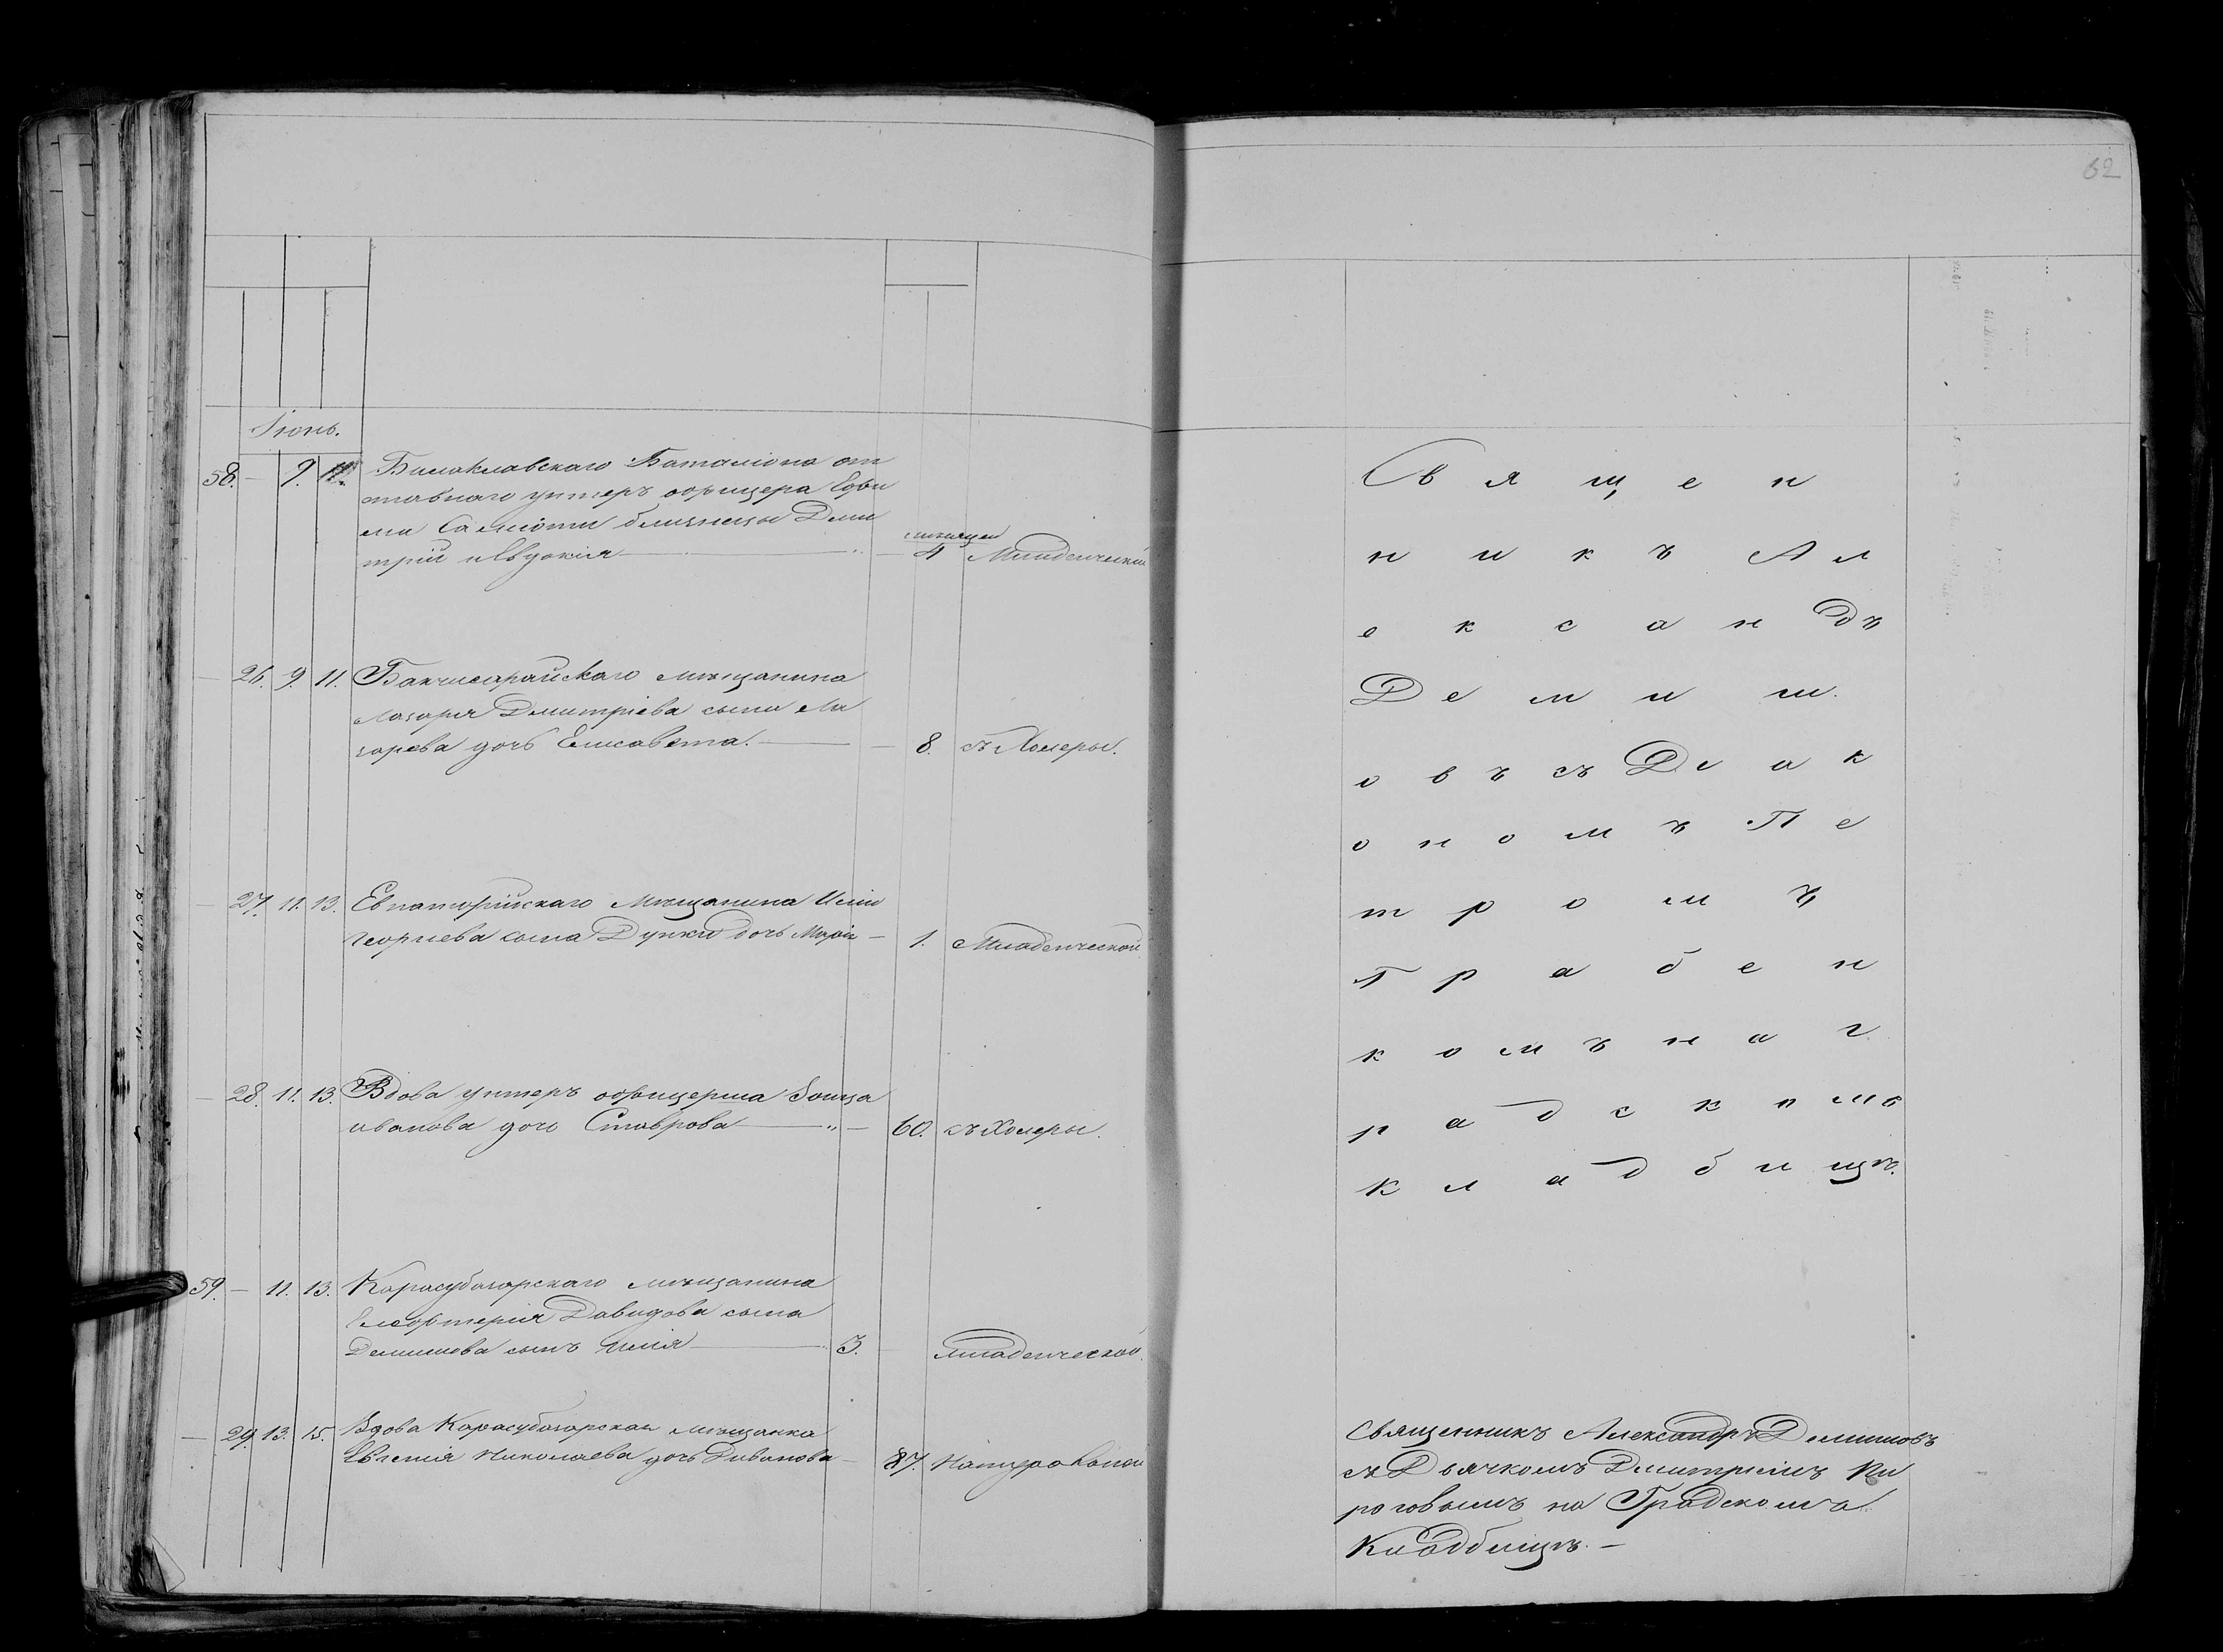 62
Іюнь.
58. — 9. 11. Балаклавскаго Баталіона от
ставнаго унтеръ офицера Ефи
ма близнецы Дми
месяцеи
трій и Евдокія — 4 Младенческой
— 26. 9. 11. Бахчисарайскаго мѣщанина
Лазаря Дмитріева сына Ла
зарева дочь Елисавета. — 8. съ Холеры.
— 27. 11. 13. Евпаторійскаго Мѣщанина Иліи
Георгіева сына дочь Марія — 1. Младенческой
— 28. 11. 13. Вдова унтеръ офицерша
иванова дочь Ставрова — „ — 60. съ Холеры.
59. — 11. 13. Карасубазарскаго мѣщанина
Елефтерія Давидова сына
Демишова сынъ Илія — 3. младенческой.
— 29. 13. 15. Вдова Карасубазарская мѣщанка
Евгенія Николаева дочь Диванова — 87. Натуральной
С в я щ е н
н и к ъ А л
е к с а н д ъ
Д е м и ш
о в ъ съ Д і а к
о н о м ъ П е
т р о м ъ
Г р а б е н
к о м ъ н а г
р а д с к о мъ
к л а д б и щѣ.
Священникъ Александръ Демишовъ
съ Дьячкомъ Дмитріемъ Пи
роговымъ на Градскомъ
Кладбищѣ. —